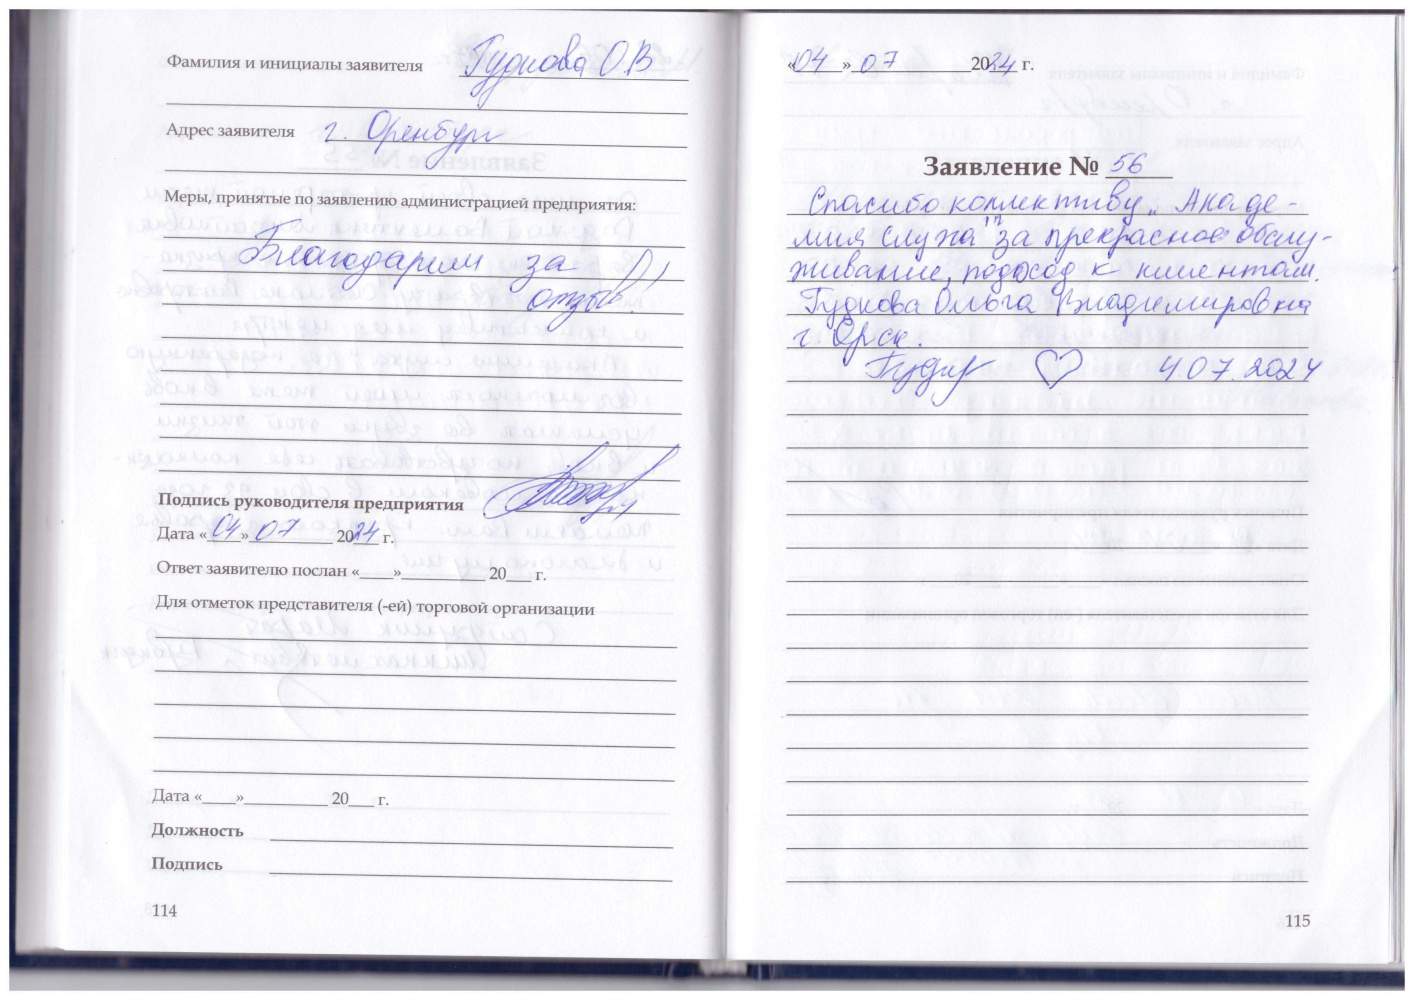 Фамилия и инициалы заявителя Гуднова О.В
Адрес заявителя г. Оренбург
Меры, принятые по заявлению администрацией предприятия:
Благодарим за
отзыв!
Подпись руководителя предприятия
Дата «04» 07 2024 г.
Ответ заявителю послан «____»__________ 20___ г.
Для отметок представителя (-ей) торговой организации
Дата «____»__________ 20___ г.
Должность
Подпись
114
«04» 07 2024 г.
Заявление № 56
Спасибо коллективу „Акаде-
мия слуха" за прекрасное обслу-
живание, подход к клиентам.
Гуднова Ольга Владимировна
г Орск.
♡ 4.07.2024
115